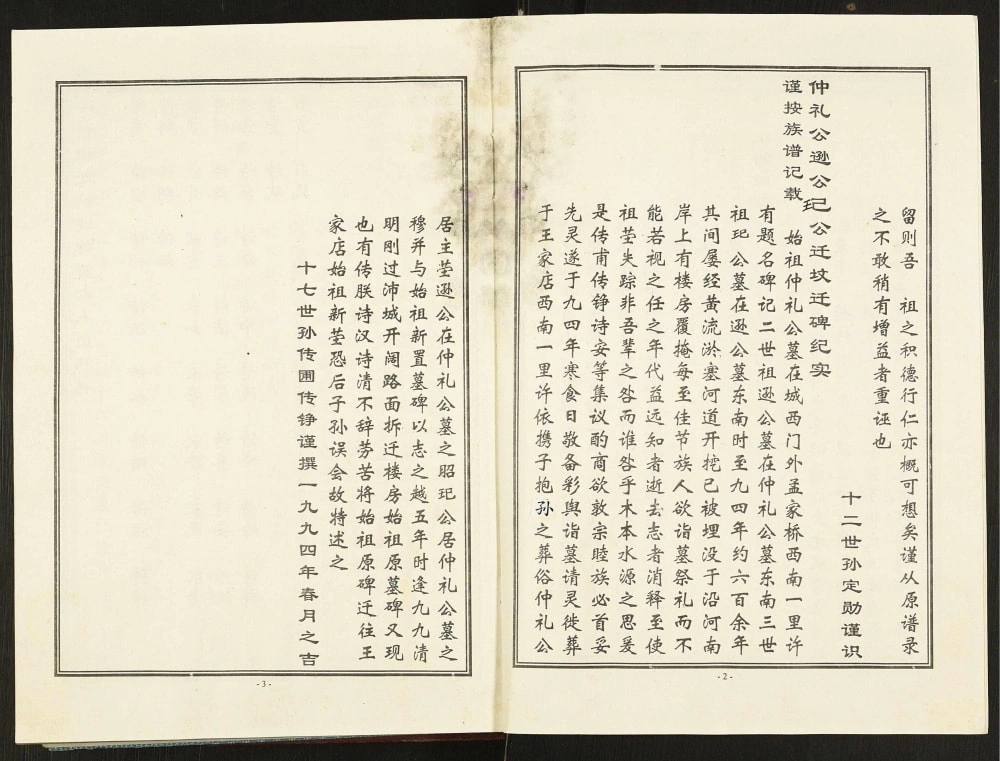 留则吾　祖之积德行仁亦概可想矣谨从原谱录
之不敢稍有增益者重诬也
十二世孙定勋谨识
仲礼公逊公玘公迁坟迁碑纪实
谨按族谱记载
始祖仲礼公墓在城西门外孟家桥西南一里许
有题名碑记二世祖逊公墓在仲礼公墓东南三世
祖玘公墓在逊公墓东南时至九四年约六百余年
其间屡经黄流淤塞河道开挖已被埋没于沿河南
岸上有楼房覆掩每至佳节族人欲诣墓祭礼而不
能若视之任之年代益远知者逝去志者消释至使
祖茔失踪非吾辈之咎而谁咎乎木本水源之思爰
是传甫传铮诗安等集议酌商欲敦宗睦族必首妥
先灵遂于九四年寒食日敬备彩舆诣墓请灵徙葬
于王家店西南一里许依携子抱孙之葬俗仲礼公
-2-
居主茔逊公在仲礼公墓之昭玘公居仲礼公墓之
穆并与始祖新置墓碑以志之越五年时逢九九清
明刚过沛城开阔路面拆迁楼房始祖原墓碑又现
也有传朕诗汉诗清不辞劳苦将始祖原碑迁往王
家店始祖新茔恐后子孙误会故特述之
十七世孙传圃传铮谨撰一九九四年春月之吉
-3-